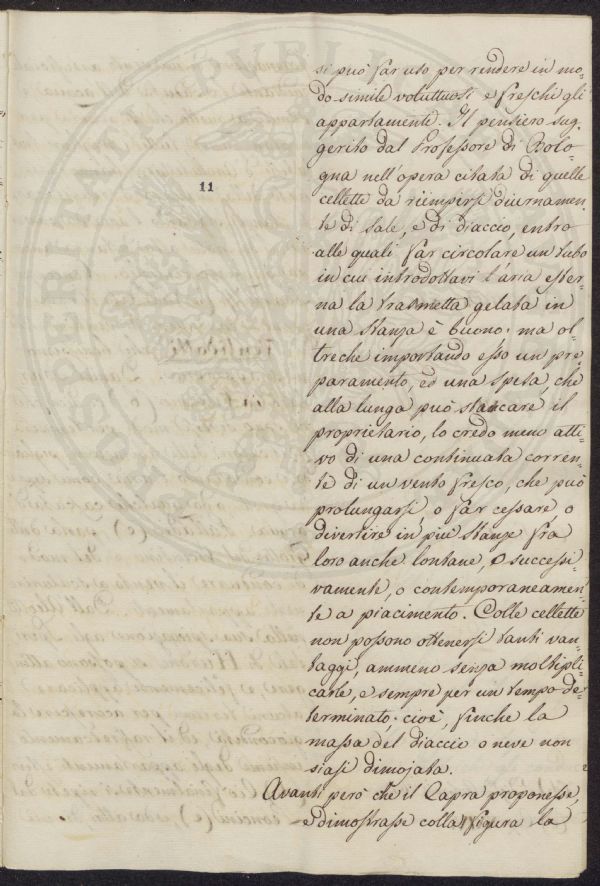 si può far uso per rendere in mo=
do simile voluttuosi e freschi gli
appartamenti. Il pensiero sug=
gerito dal Professore di Bolo=
gna nell'opera citata di quelle
cellette da riempirsi diurnamen=
te di sale, e di diaccio, entro
alle quali far circolare un tubo
in cui introdottavi l'aria ester=
na la trasmetta gelata in
una stanza è buono; ma ol=
treche importando esso un pre=
paramento, ed una spesa che
alla lunga può stancare il
proprietario, lo credo meno atti=
vo di una continuata corren=
te di un vento fresco, che può
prolungarsi, o far cessare, o
divertire in più stanze fra
loro anche lontane, o successi=
vamente, o contemporaneamen=
te a piacimento. Colle cellette
non possono ottenersi tanti van=
taggi, ammeno senza moltipli=
carle, e sempre per un tempo de=
terminato; cioè, finche la
massa del diaccio o neve non
siasi dimojata.
Avanti però che il Capra proponesse,
e dimostrasse colla figura la
11
Ventidotti